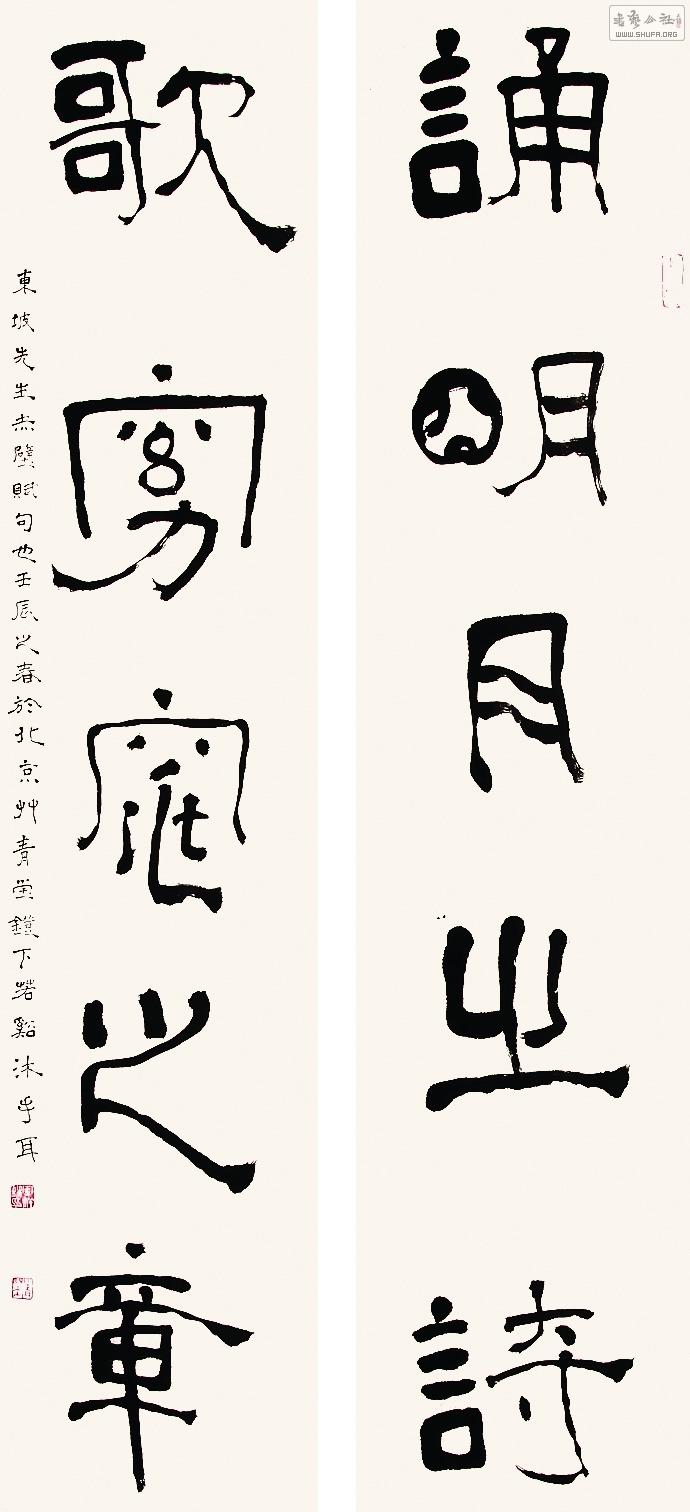 誦明月之詩
歌窈窕之章
東坡先生赤壁賦句也壬辰之春於北京艸青堂鐙下若谿沐手耳
书艺公社
WWW.SHUFA.ORG